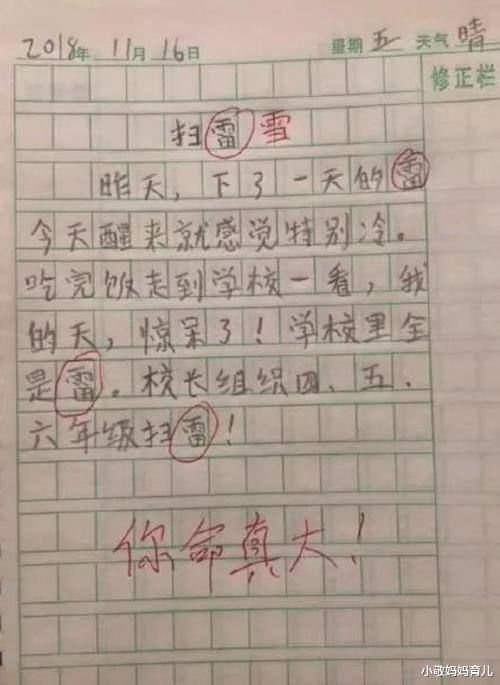 2018年 11月 16日 星期 五 天气 晴
修正栏
扫雷雪
昨天，下了一天的雷
今天醒来就感觉特别冷。
吃完饭走到学校一看，我
的天，惊呆了！学校里全
是雷。校长组织四、五、
六年级扫雷！
你命真大！
小敬妈妈育儿